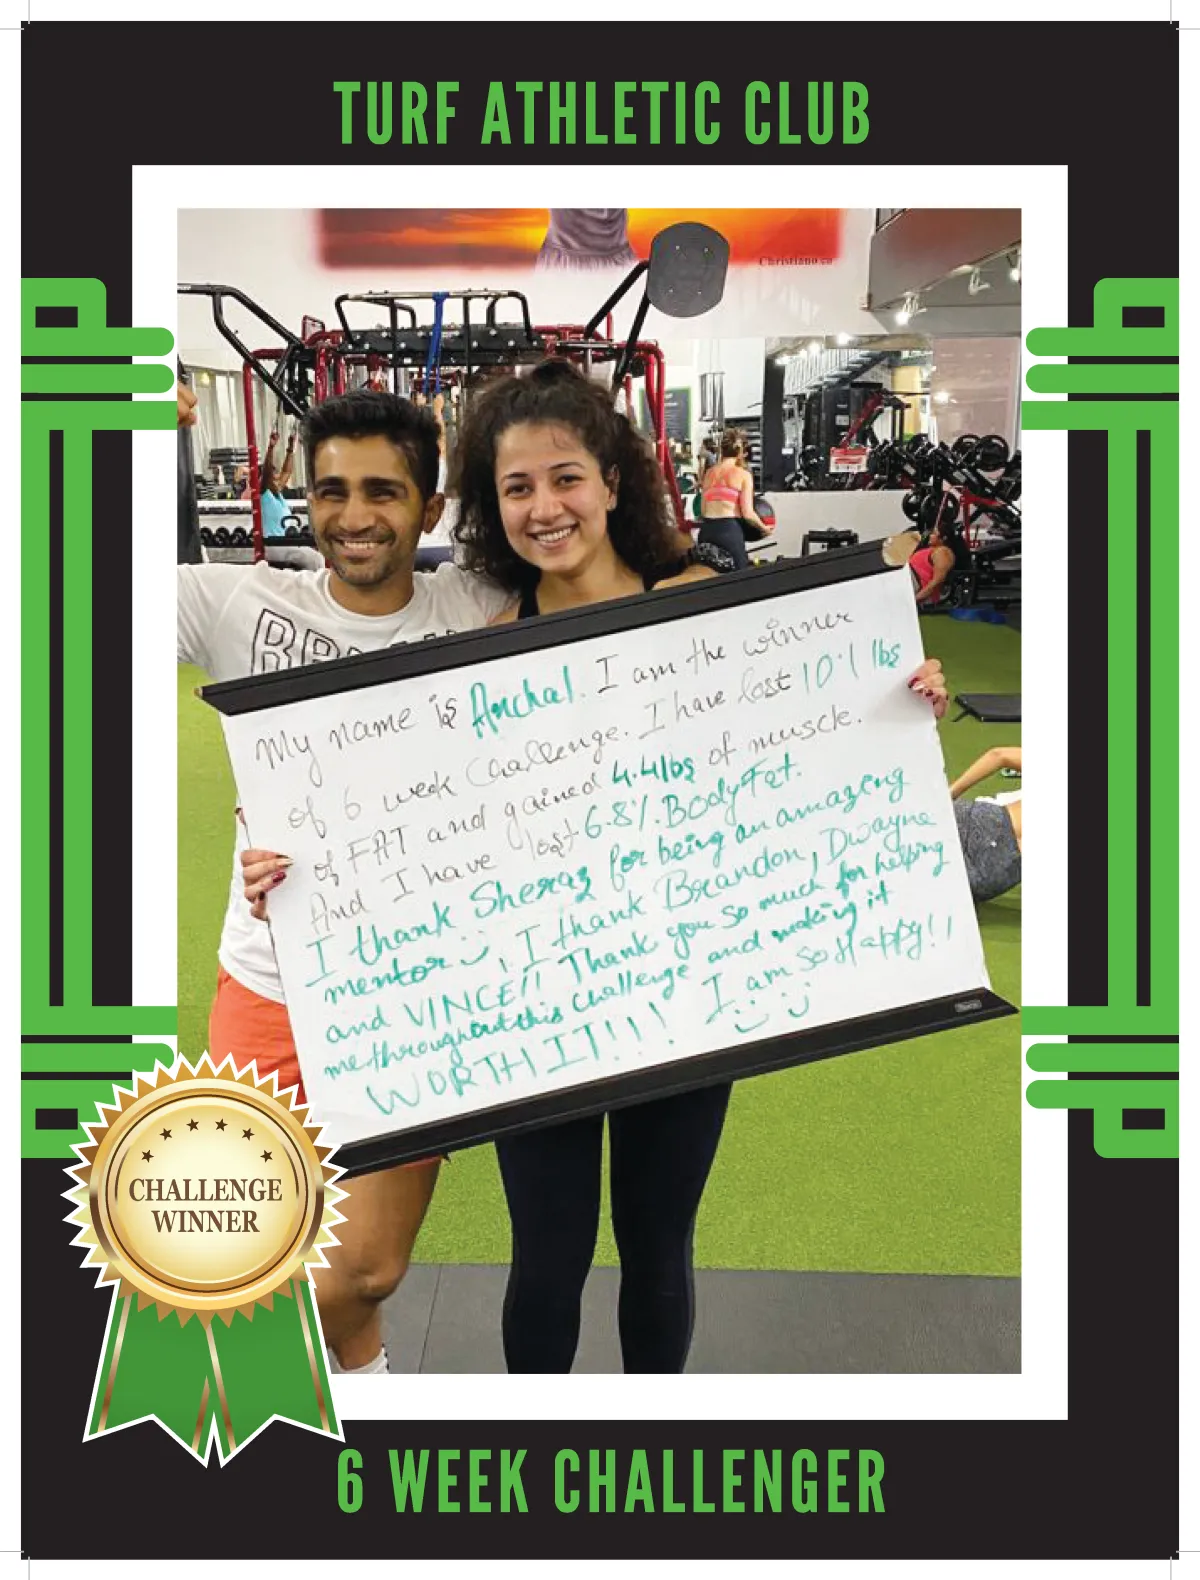 TURF ATHLETIC CLUB
Christiano.ca
My name is Anchal. I am the winner
of 6 week Challenge. I have lost 10.1 lbs
of FAT and gained 4.4lbs of muscle.
And I have lost 6.8%. Body Fat.
I thank Sheraz for being an amazing
mentor :), I thank Brandon, Dwayne
and VINCE!! Thank you so much for helping
me throughout this challenge and making it
WORTH IT!!! I am so Happy!!
CHALLENGE
WINNER
6 WEEK CHALLENGER